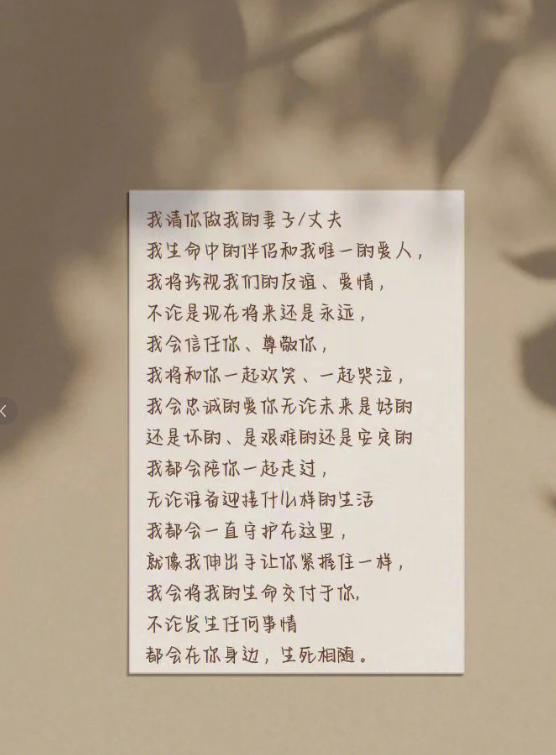 我请你做我的妻子/丈夫
我生命中的伴侣和我唯一的爱人，
我将珍视我们的友谊、爱情，
不论是现在将来还是永远，
我会信任你、尊敬你，
我将和你一起欢笑、一起哭泣，
我会忠诚的爱你无论未来是好的
还是坏的、是艰难的还是安定的
我都会陪你一起走过，
无论准备迎接什么样的生活
我都会一直守护在这里，
就像我伸出手让你紧握住一样，
我会将我的生命交付于你，
不论发生任何事情
都会在你身边，生死相随。